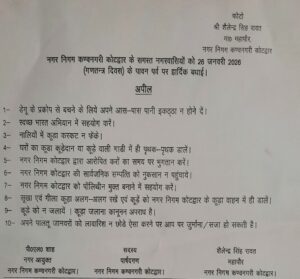 फोटो
श्री शैलेन्द्र सिंह रावत
मा0 महापौर
नगर निगम कण्वनगरी कोटद्वार
नगर निगम कण्वनगरी कोटद्वार के समस्त नगरवासियों को 26 जनवरी 2026
(गणतन्त्र दिवस) के पावन पर्व पर हार्दिक बधाई।
अपील
1- डेंगू के प्रकोप से बचने के लिये अपने आस-पास पानी इकठ्ठा न होने दें।
2- स्वच्छ भारत अभियान में सहयोग करें।
3- नालियों में कूड़ा करकट न फेंकें।
4- घरों का कूड़ा कूड़ेदान या कूड़े वाली गाड़ी में ही पृथक-पृथक डालें।
5- नगर निगम कोटद्वार द्वारा आरोपित करों का समय पर भुगतान करें।
6- नगर निगम कोटद्वार की सार्वजनिक सम्पत्ति को नुकसान न पहुंचावें।
7- नगर निगम कोटद्वार को पॉलिथीन मुक्त बनाने में सहयोग करें।
8- सूखा एवं गीला कूड़ा अलग-अलग रखें एवं कूड़ें को नगर निगम कोटद्वार के कूड़ा वाहन में ही डालें।
9- कूड़े को न जलायें । कूड़ा जलाना कानूनन अपराध है।
10- अपने पालतू जानवरों को लावारिस न छोडे ऐसा करने पर आप पर जुर्माना/सजा हो सकती है।
पी0एल0 शाह
नगर आयुक्त
नगर निगम कण्वनगरी कोटद्वार
समस्त
पार्षदगण
नगर निगम कण्वनगरी कोटद्वार
शैलेन्द्र सिंह रावत
महापौर
नगर निगम कण्वनगरी कोटद्वार